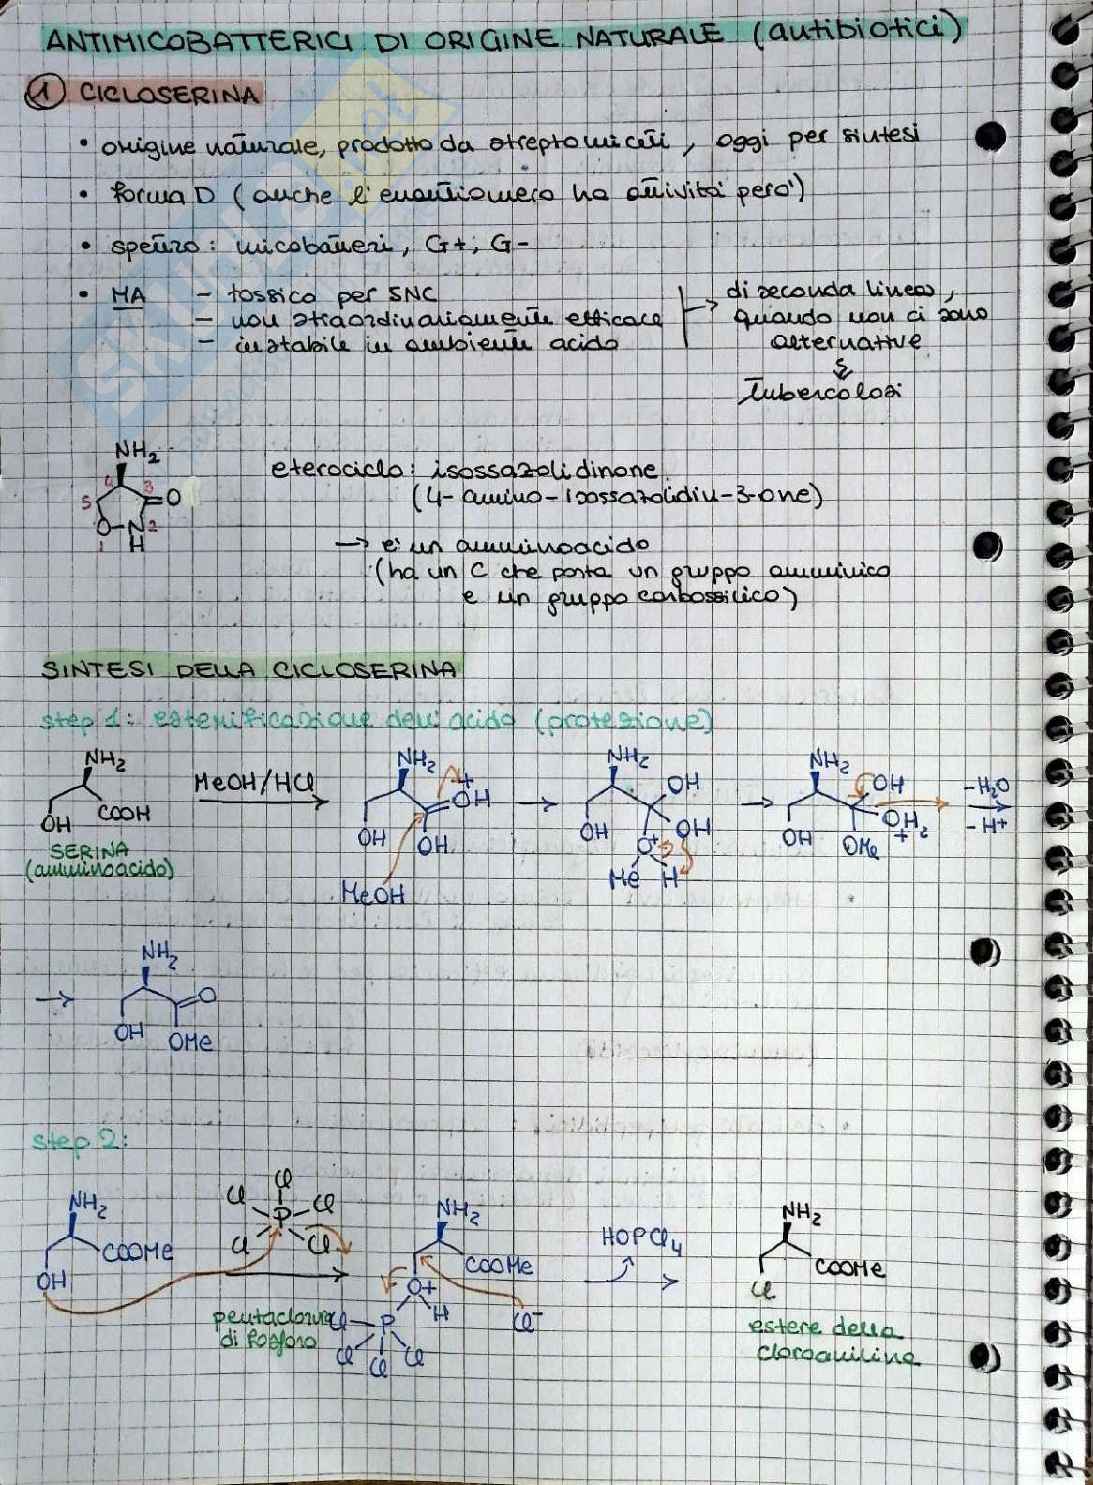 ANTIMICOBATTERICI DI ORIGINE NATURALE (antibiotici)
1 CICLOSERINA
• origine naturale, prodotto da streptomiceti, oggi per sintesi
• forma D (anche l'enantiomero ha attività però)
• spettro: micobatteri, G+, G-
• MA - tossico per SNC
- non straordinariamente efficace
- instabile in ambiente acido
→ di seconda linea,
quando non ci sono
alternative
Tubercolosi
NH2
4 3
5 O
O-N 2
1 H
eterociclo: isossazolidinone
(4-amino-isossazolidin-3-one)
→ è un amminoacido
(ha un C che porta un gruppo amminico
e un gruppo carbossilico)
SINTESI DELLA CICLOSERINA
step 1: esterificazione dell'acido (protezione)
NH2 COOH OH
SERINA
(amminoacido)
MeOH/HCl
NH2 + OH OH OH
MeOH
NH2 OH OH OH O+ Me H
NH2 OH OH2 + OH OMe
-H2O
-H+
NH2 O OH OMe
step 2:
NH2 COOMe OH
Cl Cl Cl P Cl Cl
pentacloruro
di fosforo
NH2 COOMe O+ H P Cl Cl Cl Cl
Cl-
HOPCl4
NH2 COOMe Cl
estere della
cloroanilina